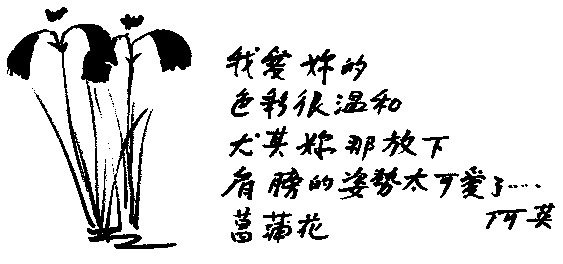 我愛妳的
色彩很溫和
尤其妳那放下
肩膀的姿勢太可愛了……
菖蒲花
阿英